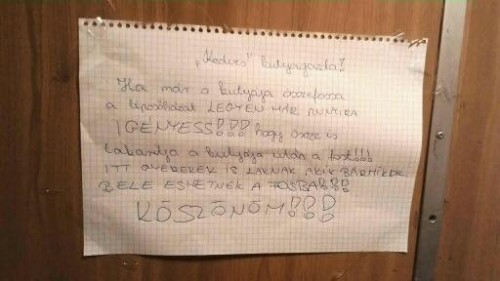 „Kedves" kutyagazda!
Ha már a kutyája összefossa
a lépcsőházat LEGYEN MÁR ANNYIRA
IGÉNYESS!!! hogy össze is
takarítja a kutyája után a fost!!!
ITT GYEREKEK IS LAKNAK AKIK BÁRMIKOR
BELE ESHETNEK A FOSBA!!!
KÖSZÖNÖM!!!